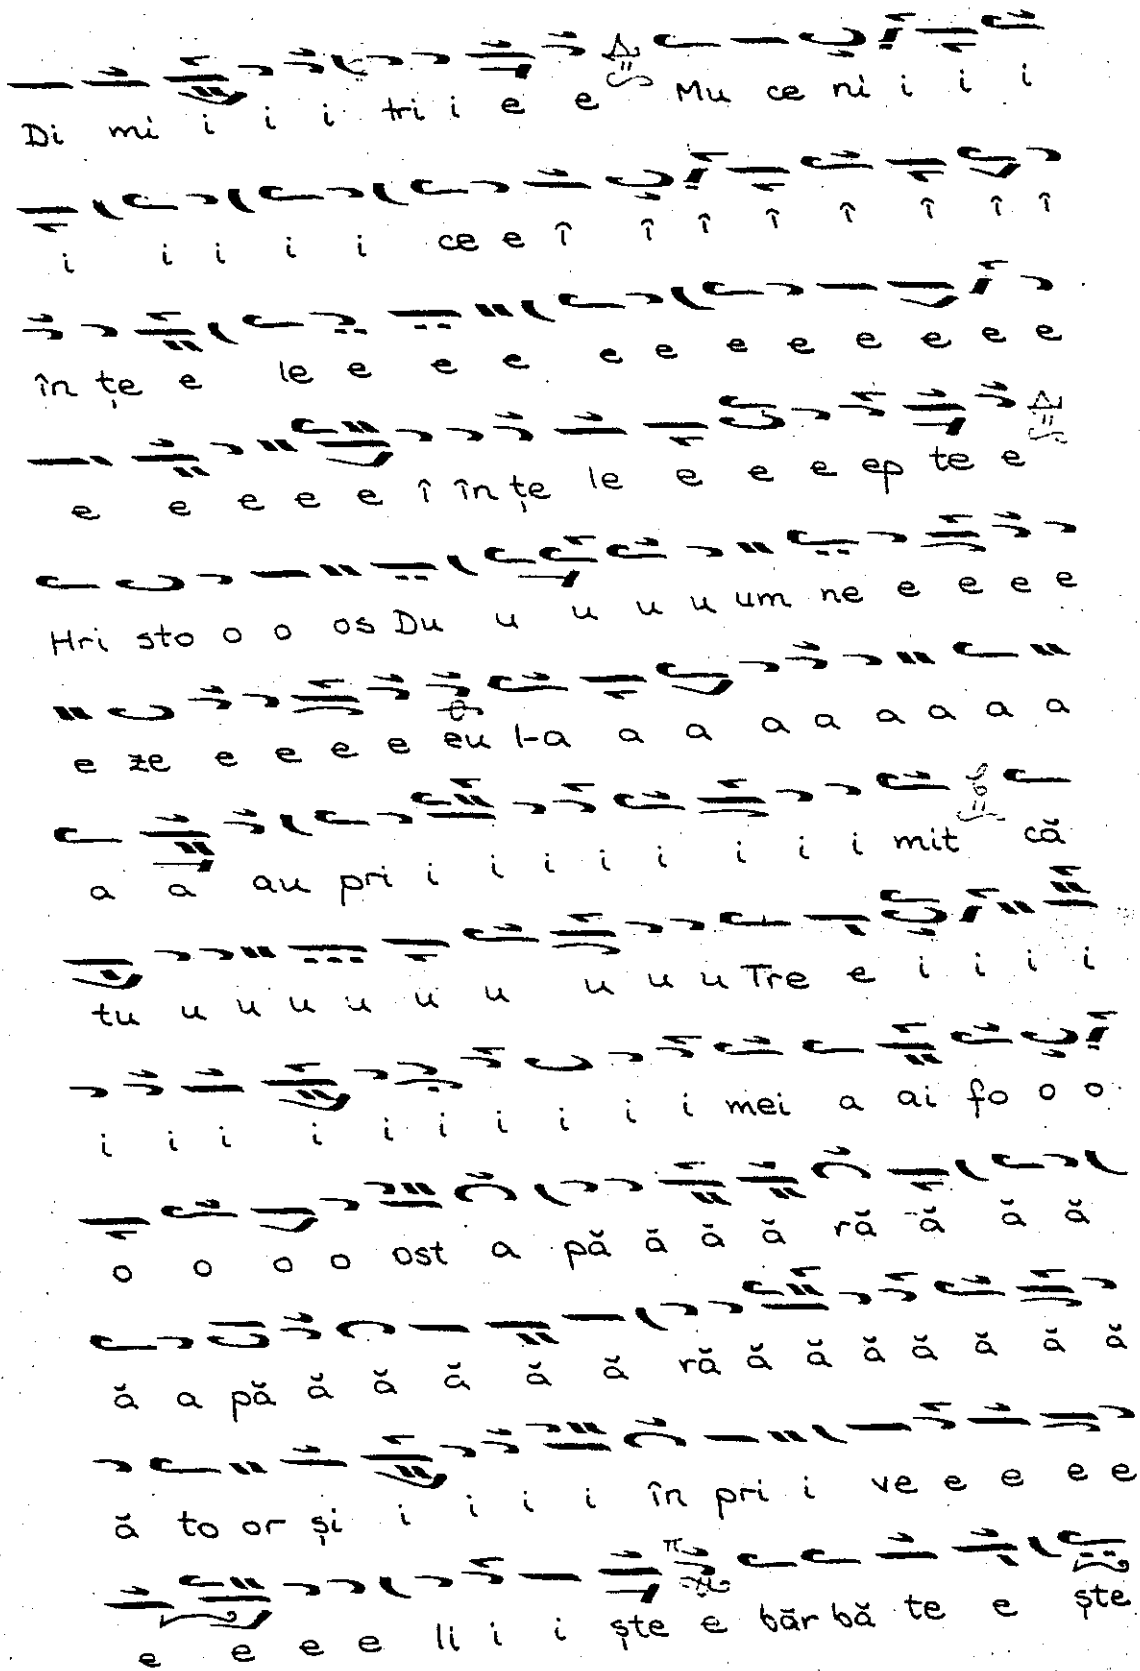 Di mi i i i tri i e e Mu ce ni i i i
i i i i i ce e î î î î î î î î
în țe e le e e e e e e e e e e e
e e e e e î în țe le e e e ep te e
Hri sto o o os Du u u u u um ne e e e e
e ze e e e e eu l-a a a a a a a a
a a au pri i i i i i i i i mit că
tu u u u u u u u u u Tre e i i i i
i i i i i i i i i i mei a ai fo o o
o o o o ost a pă ă ă ă ră ă ă ă
ă a pă ă ă ă ă ă ră ă ă ă ă ă ă ă
ă to or și i i i i în pri i ve e e e e
e e e e li i i ște e băr bă te e ște